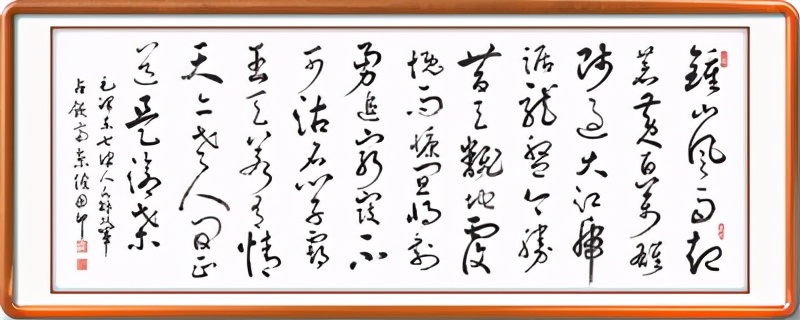 鍾山风雨起
苍黄百萬雄
师过大江虎
踞龙盘今胜
昔天翻地覆
慨而慷宜将剩
勇追穷寇不
可沽名学霸
王天若有情
天亦老人间正
道是沧桑
毛泽东七律人民解放军
占领南京